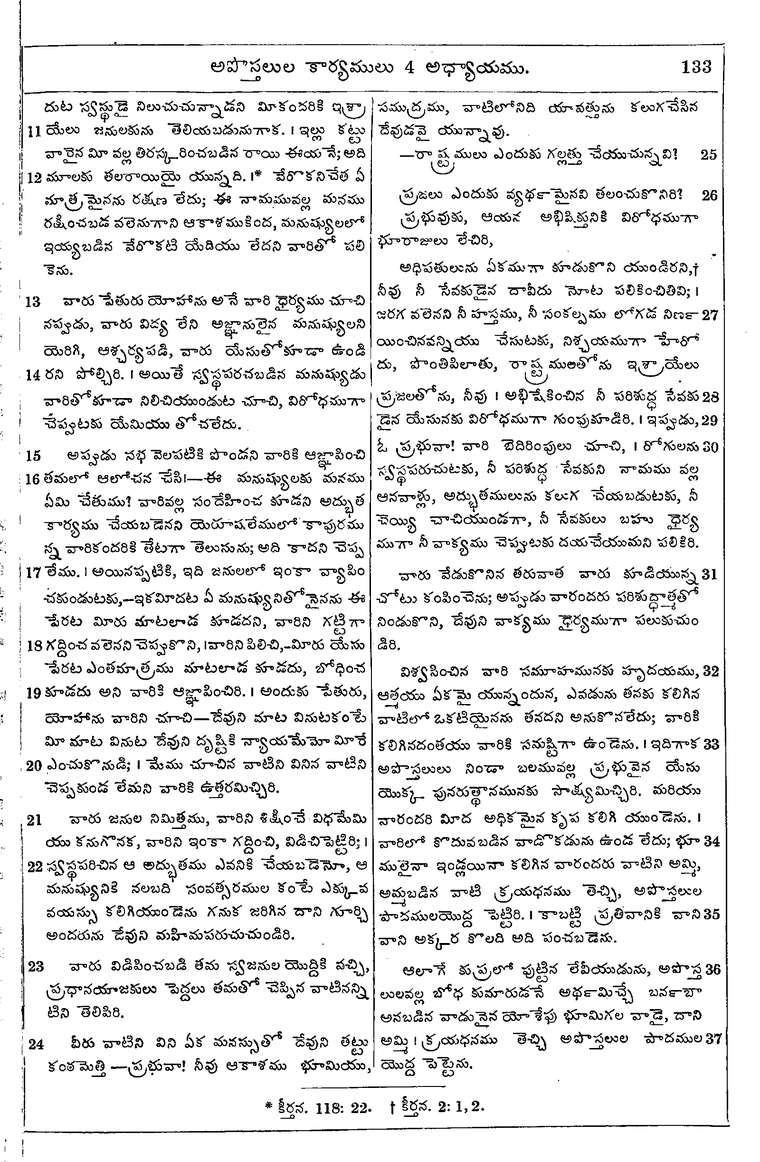 అపొస్తలుల కార్యములు 4 అధ్యాయము. 133
దుట స్వస్థుడై నిలుచుచున్నాడని మీకందరికి ఇశ్రా
11 యేలు జనులకును తెలియబడునుగాక. । ఇల్లు కట్టు
వారైన మీ వల్ల తిరస్కరించబడిన రాయి ఈయనే; అది
12 మూలకు తలరాయియై యున్నది. ।* వేరొకనిచేత ఏ
మాత్రమైనను రక్షణ లేదు; ఈ నామమువల్ల మనము
రక్షించబడ వలెనుగాని ఆకాశముకింద, మనుష్యులలో
ఇయ్యబడిన వేరొకటి యేదియు లేదని వారితో పలి
కెను.
13 వారు పేతురు యోహాను అనే వారి ధైర్యము చూచి
నప్పుడు, వారు విద్య లేని అజ్ఞానులైన మనుష్యులని
యెరిగి, ఆశ్చర్యపడి, వారు యేసుతోకూడా ఉండి
14 రని పోల్చిరి. । అయితే స్వస్థపరచబడిన మనుష్యుడు
వారితోకూడా నిలిచియుండుట చూచి, విరోధముగా
చెప్పుటకు యేమియు తోచలేదు.
15 అప్పుడు సభ వెలపటికి పొండని వారికి ఆజ్ఞాపించి
16 తమలో ఆలోచన చేసి।—ఈ మనుష్యులకు మనము
ఏమి చేతుము? వారివల్ల సందేహించ కూడని అద్భుత
కార్యము చేయబడెనని యెరూషలేములో కాపురము
న్న వారికందరికి తేటగా తెలుసును; అది కాదని చెప్ప
17 లేము. । అయినప్పటికి, ఇది జనులలో ఇంకా వ్యాపిం
చకుండుటకు,—ఇకమీదట ఏ మనుష్యునితోనైనను ఈ
పేరట మీరు మాటలాడ కూడదని, వారిని గట్టిగా
18 గద్దించ వలెనని చెప్పుకొని, ।వారిని పిలిచి,—మీరు యేసు
పేరట ఎంతమాత్రము మాటలాడ కూడదు, బోధించ
19 కూడదు అని వారికి ఆజ్ఞాపించిరి. । అందుకు పేతురు,
యోహాను వారిని చూచి—దేవుని మాట వినుటకంటె
మీ మాట వినుట దేవుని దృష్టికి న్యాయమేమో మీరే
20 ఎంచుకొనుడి; । మేము చూచిన వాటిని వినిన వాటిని
చెప్పకుండ లేమని వారికి ఉత్తరమిచ్చిరి.
21 వారు జనుల నిమిత్తము, వారిని శిక్షించే విధమేమి
యు కనుగొనక, వారిని ఇంకా గద్దించి, విడిచిపెట్టిరి; ।
22 స్వస్థపరిచిన ఆ అద్భుతము ఎవనికి చేయబడెనో, ఆ
మనుష్యునికి నలబది సంవత్సరముల కంటె ఎక్కువ
వయస్సు కలిగియుండెను గనుక జరిగిన దాని గూర్చి
అందరును దేవుని మహిమపరుచుచుండిరి.
23 వారు విడిపించబడి తమ స్వజనుల యొద్దికి వచ్చి,
ప్రధానయాజకులు పెద్దలు తమతో చెప్పిన వాటినన్ని
టిని తెలిపిరి.
24 వీరు వాటిని విని ఏక మనస్సుతో దేవుని తట్టు
కంఠమెత్తి —ప్రభువా! నీవు ఆకాశము భూమియు,
సముద్రము, వాటిలోనిది యావత్తును కలుగచేసిన
దేవుడవై యున్నావు.
—రాష్ట్రములు ఎందుకు గల్లత్తు చేయుచున్నవి? 25
ప్రజలు ఎందుకు వ్యర్థమైనవి తలంచుకొనిరి? 26
ప్రభువుకు, ఆయన అభిషిక్తునికి విరోధముగా
భూరాజులు లేచిరి,
అధిపతులును ఏకముగా కూడుకొని యుండిరని,†
నీవు నీ సేవకుడైన దావీదు నోట పలికించితివి; ।
జరగ వలెనని నీ హస్తము, నీ సంకల్పము లోగడ నిర్ణ 27
యించినవన్నియు చేసుటకు, నిశ్చయముగా హేరో
దు, పొంతిపిలాతు, రాష్ట్రములతోను ఇశ్రాయేలు
ప్రజలతోను, నీవు । అభిషేకించిన నీ పరిశుద్ధ సేవకు 28
డైన యేసునకు విరోధముగా గుంపుకూడిరి. । ఇప్పుడు, 29
ఓ ప్రభువా! వారి బెదిరింపులు చూచి, । రోగులను 30
స్వస్థపరుచుటకు, నీ పరిశుద్ధ సేవకుని నామము వల్ల
ఆనవాళ్లు, అద్భుతములును కలుగ చేయబడుటకు, నీ
చెయ్యి చాచియుండగా, నీ సేవకులు బహు ధైర్య
ముగా నీ వాక్యము చెప్పుటకు దయచేయుమని పలికిరి.
వారు వేడుకొనిన తరువాత వారు కూడియున్న 31
చోటు కంపించెను; అప్పుడు వారందరు పరిశుద్ధాత్మతో
నిండుకొని, దేవుని వాక్యము ధైర్యముగా పలుకుచుం
డిరి.
విశ్వసించిన వారి సమూహమునకు హృదయము, 32
ఆత్మయు ఏకమై యున్నందున, ఎవడును తనకు కలిగిన
వాటిలో ఒకటియైనను తనదని అనుకొనలేదు; వారికి
కలిగినదంతయు వారికి సమష్టిగా ఉండెను. । ఇదిగాక 33
అపొస్తలులు నిండా బలమువల్ల ప్రభువైన యేసు
యొక్క పునరుత్థానమునకు సాక్ష్యమిచ్చిరి. మరియు
వారందరి మీద అధికమైన కృప కలిగి యుండెను. ।
వారిలో కొదువబడిన వాడొకడును ఉండ లేదు; భూ 34
ములైనా ఇండ్లయినా కలిగిన వారందరు వాటిని అమ్మి,
అమ్మబడిన వాటి క్రయధనము తెచ్చి, అపొస్తలుల
పాదములయొద్ద పెట్టిరి. । కాబట్టి ప్రతివానికి వాని 35
వాని అక్కర కొలది అది పంచబడెను.
ఆలాగే కుప్రలో పుట్టిన లేవీయుడును, అపొస్త 36
లులవల్ల బోధ కుమారుడనే అర్థమిచ్చే బర్నబా
అనబడిన వాడునైన యోశేఫు భూమిగల వాడై, దాని
అమ్మి । క్రయధనము తెచ్చి అపొస్తలుల పాదముల 37
యొద్ద పెట్టెను.
* కీర్తన. 118: 22. † కీర్తన. 2: 1, 2.